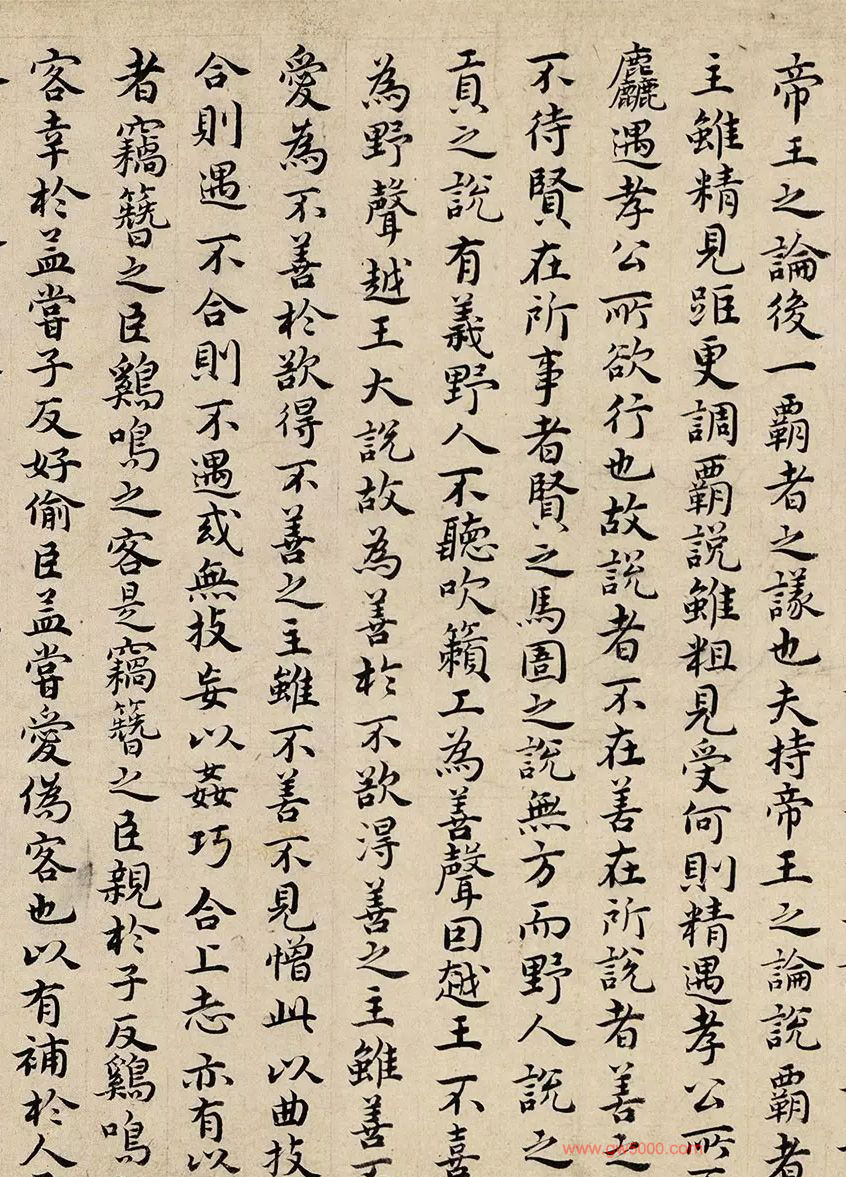 帝王之論後一覇者之議也夫持帝王之論說覇者
主雖精見距更調覇說雖粗見受何則精遇孝公所不
麤遇孝公所欲行也故說者不在善在所說者善之
不待賢在所事者賢之馬圄之說無方而野人說之
貢之說有義野人不聽吹籟工為善聲因越王不喜
為野聲越王大說故為善於不欲得善之主雖善不
愛為不善於欲得不善之主雖不善不見憎此以曲技
合則遇不合則不遇或無技妄以姦巧合上志亦有以
者竊簪之臣鷄鳴之客是竊簪之臣親於子反鷄鳴
客幸於孟嘗子反好偷臣孟嘗愛偽客也以有補於人
www.gw5000.com